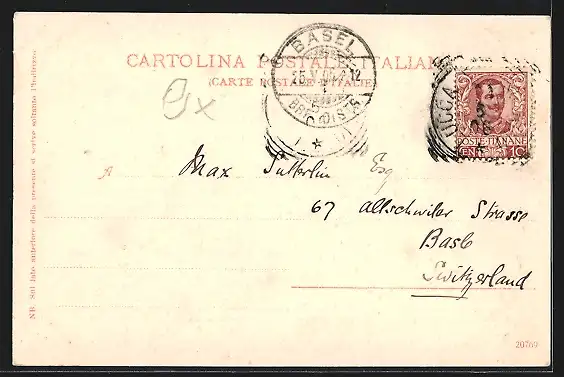 CARTOLINA POSTALE ITALIANA
(CARTE POSTALE D'ITALIE)
BASEL
25.V.
LUCCA
POSTE ITALIANE
CENT. 10
A Max Sutterlin Esq
67 Allschwiler Strasse
Basle
Switzerland
NB. Sul lato anteriore della presente si scrive soltanto l'indirizzo.
20769